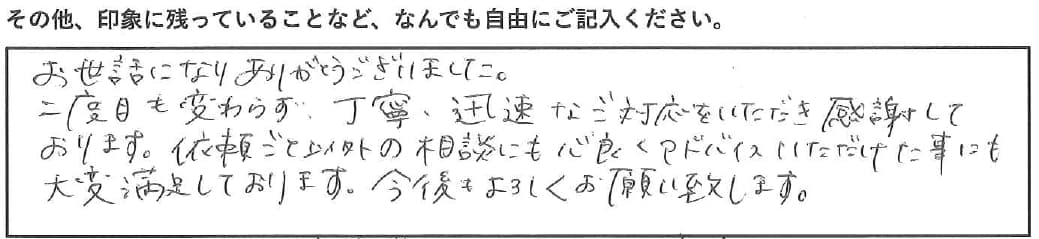 その他、印象に残っていることなど、なんでも自由にご記入ください。
お世話になりありがとうございました。
二度目も変わらず、丁寧、迅速なご対応をいただき感謝して
おります。依頼ごと以外の相談にも心良くアドバイスいただけた事にも
大変満足しております。今後もよろしくお願い致します。